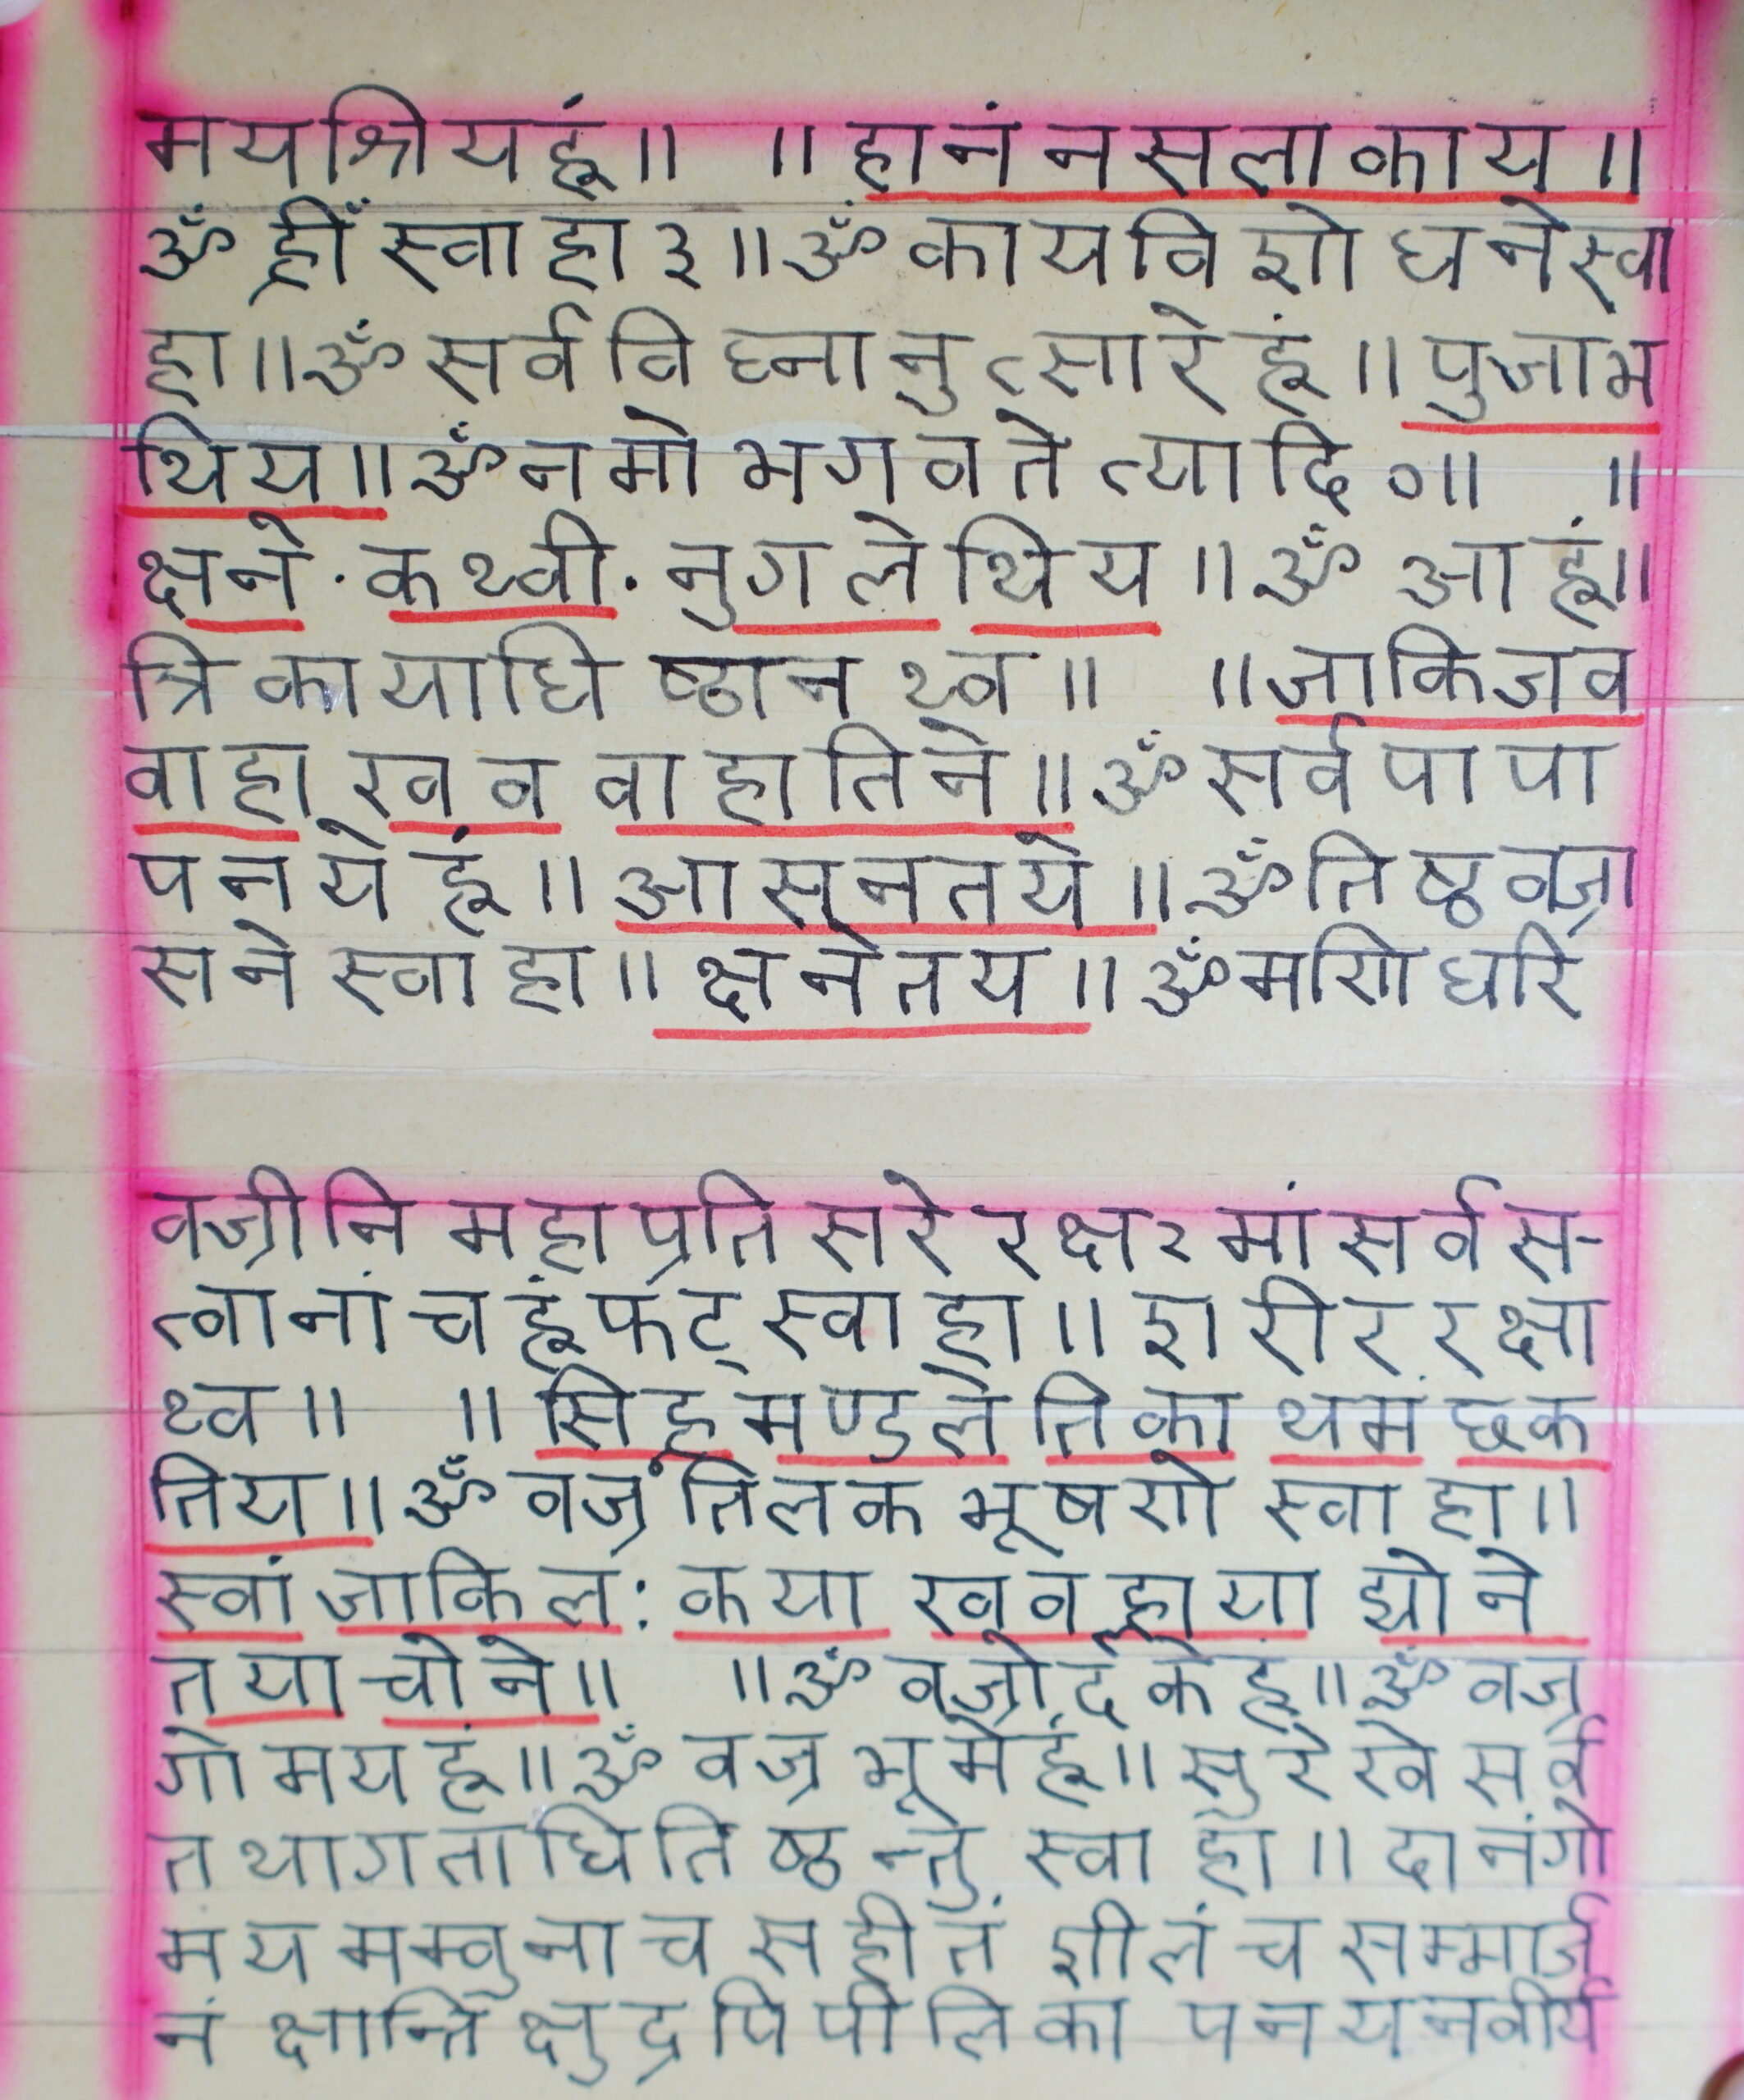 मयश्रियहूं॥ ॥हानं नसलाकाय॥
ॐ ह्रीँ स्वाहा३॥ॐ कायविशोधनेस्वा
हा॥ॐ सर्वविघ्नानुत्सारेहूं॥पुजाभ
थिय॥ॐ नमो भगवते त्यादि०॥ ॥
क्षने·कथ्वी·नुगले थिय॥ॐ आहूं॥
त्रिकायाधिष्ठान थ्व॥ ॥जाकिजव
वाहा खव वाहातिने॥ॐ सर्वपापा
पनयेहूं॥आसनतये॥ॐतिष्ठवज्रा
सने स्वाहा॥क्षनेतय॥ॐमणिधरि
वज्रीनि महाप्रतिसरे रक्ष२मांसर्वस-
त्वानांचहूंफट्स्वाहा॥शरीर रक्षा
थ्व॥ ॥सिह्ल मण्डले तिका थमं छक
तिय॥ॐ वज्रतिलक भूषणे स्वाहा॥
स्वां जाकि लः कया खवल्हाया द्योने
तया चोने॥ ॥ॐ वज्रोदकेहूं॥ॐ वज्र
गोमयहूं॥ॐ वज्रभूमेहूं॥सुरेखे सर्व
तथागताधितिष्ठन्तु स्वाहा॥दानंगो
मयमम्बुना च सहीतं शीलं च सम्मार्ज
नं क्षान्ति क्षुद्रपिपीलिका पनयनवीर्य